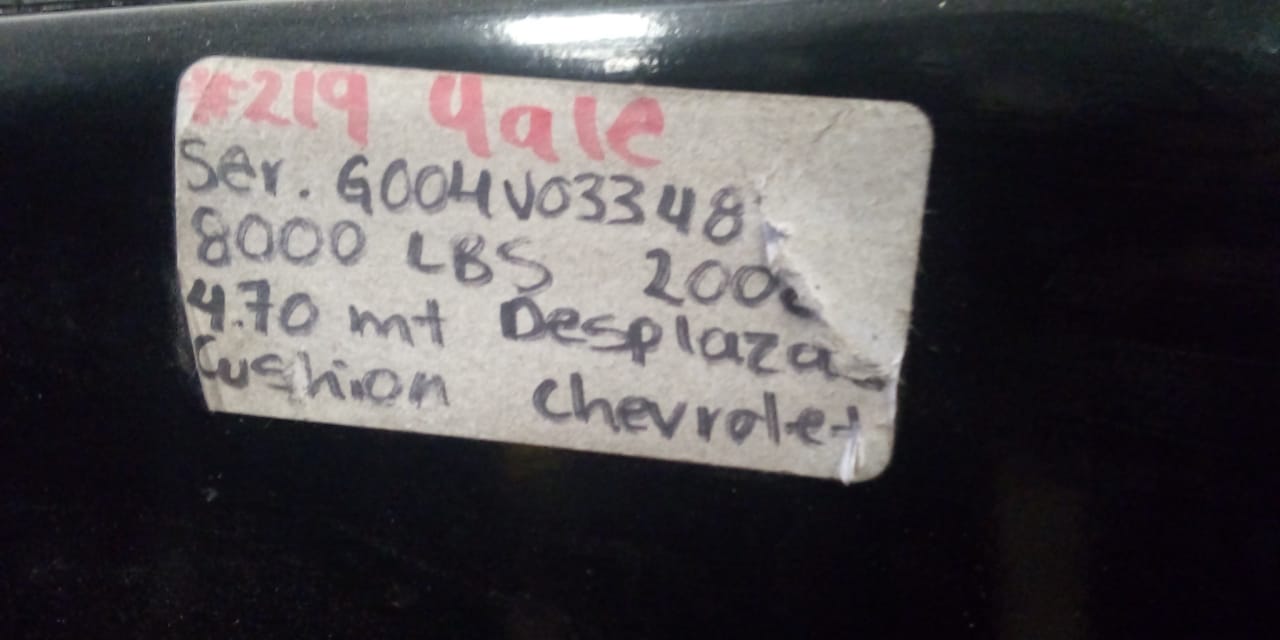 #219 Yale
Ser. G004V03348
8000 LBS
4.70 mt Desplaza
Cushion Chevrolet